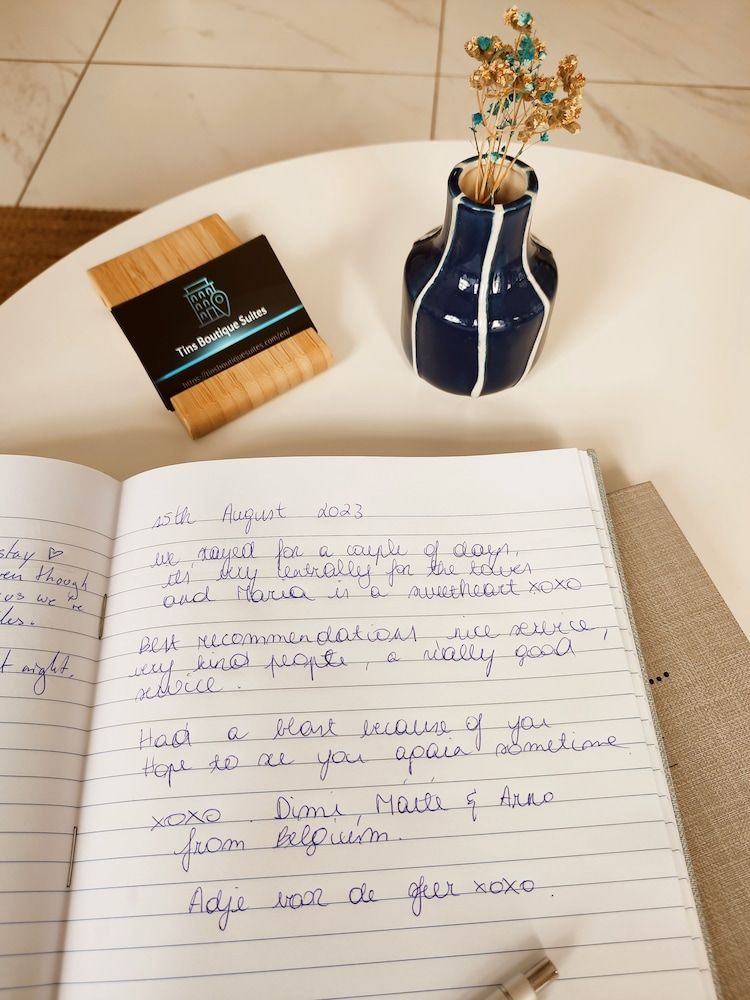 Tins Boutique Suites
https://tinsboutiquesuites.com/en/
stay ♡
though
us we're
night.
15th August 2023
we stayed for a couple of days,
it's very centrally for the
and Maria is a sweetheart xoxo
Best recommendations, nice service,
very kind people, a really good
service.
Had a blast because of you
Hope to see you again sometime
xoxo Dimi, & Arno
from Belguim.
Adje van de xoxo.